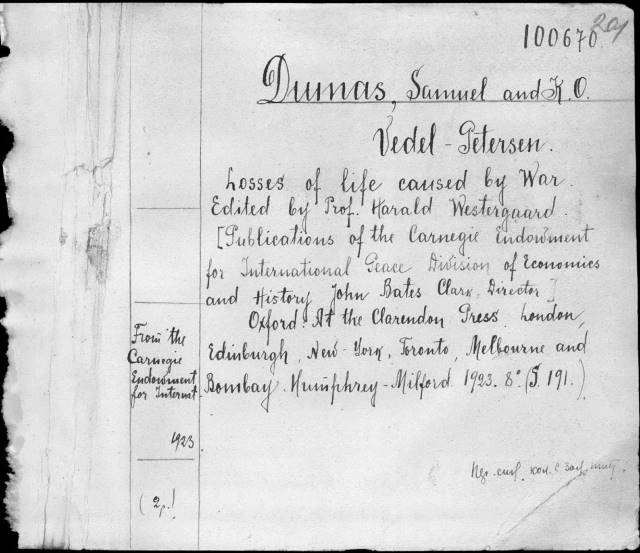 100670
Dumas, Samuel and K. O.
Vedel - Petersen.
Losses of life caused by War.
Edited by Prof. Harald Westergaard.
[Publications of the Carnegie Endowment
for International Peace Division of Economics
and History John Bates Clark, Director]
Oxford: At the Clarendon Press. London,
Edinburgh, New-York, Toronto, Melbourne and
Bombay. Humphrey-Milford. 1923. 8° (S. 191.)
From the
Carnegie
Endowment
for Internat.
923
(2p.)